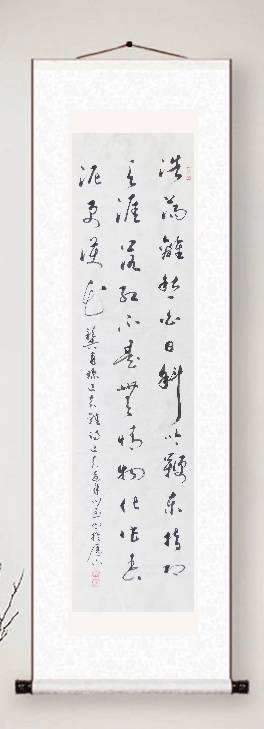 浩蕩離愁白日斜吟鞭東指即
天涯落紅不是無情物化作春
泥更護花
龔自珍己亥雜詩